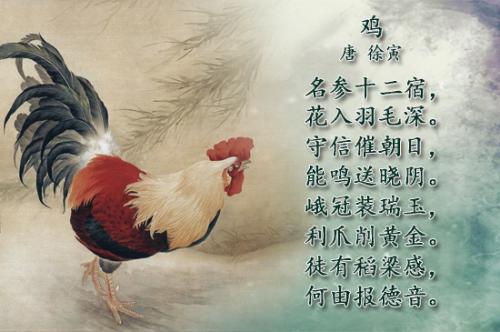 鸡
唐 徐寅
名参十二宿，
花入羽毛深。
守信催朝日，
能鸣送晓阴。
峨冠装瑞玉，
利爪削黄金。
徒有稻粱感，
何由报德音。